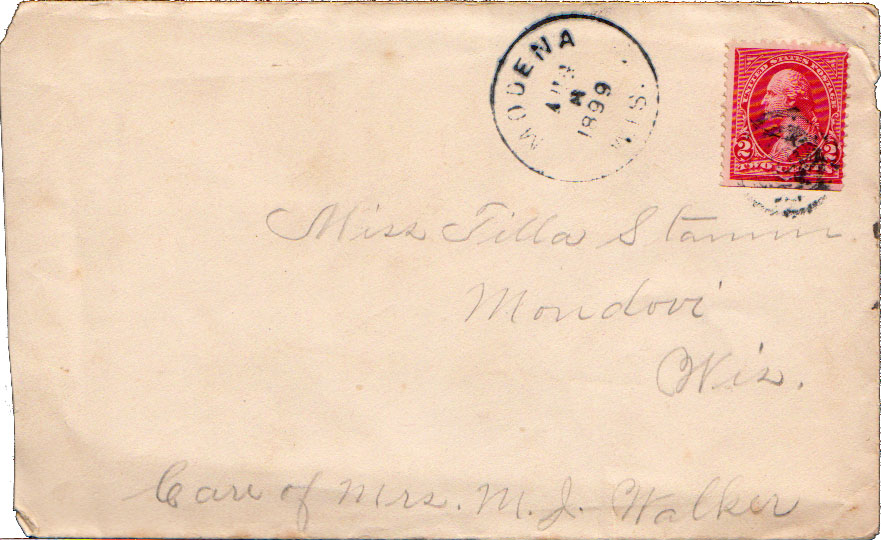 MODENA WIS.
AUG
2
1899
UNITED STATES POSTAGE
2 2
Miss Tilla Stamm
Mondovi
Wis.
Care of Mrs. M. J. Walker